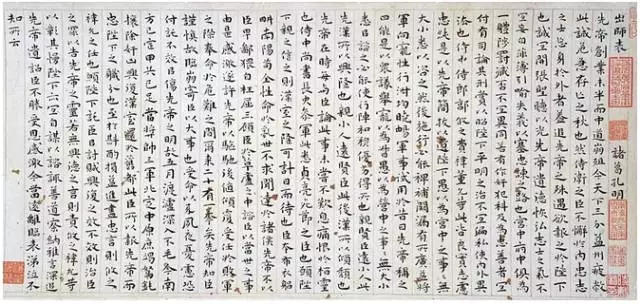 出師表
諸葛孔明
先帝創業未半而中道崩殂今天下三分益州疲敝
此誠危急存亡之秋也然侍衛之臣不懈於內忠志
之士忘身於外者蓋追先帝之殊遇欲報之於陛下
也誠宜開張聖聽以光先帝遺德恢弘志士之氣不
宜妄自菲薄引喻失義以塞忠諫之路也宮中府中俱為
一體陟罰臧否不宜異同若有作姦犯科及為忠善者宜
付有司論其刑賞以昭陛下平明之治不宜偏私使內外異
法也侍中侍郎郭攸之費禕董允等此皆良實志慮
忠純是以先帝簡拔以遺陛下愚以為宮中之事事無
大小悉以咨之然後施行必能裨補闕漏有所廣益將
軍向寵性行淑均曉暢軍事試用於昔日先帝稱之
曰能是以眾議舉寵為督愚以為營中之事
悉以咨之必能使行陣和穆優劣得所也親賢臣遠小人此
先漢所以興隆也親小人遠賢臣此後漢所以傾頹也
先帝在時每與臣論此事未嘗不歎息痛恨於桓靈
也侍中尚書長史參軍此悉貞亮死節之臣也願陛
下親之信之則漢室之隆可計日而待也臣本布衣躬
耕南陽苟全性命於亂世不求聞達於諸侯先帝不以
臣卑鄙猥自枉屈三顧臣於草廬之中諮臣以當世之事
由是感激遂許先帝以驅馳後值傾覆受任於敗軍
之際奉命於危難之間爾來二十有一年矣先帝知臣
謹慎故臨崩寄臣以大事也受命以來夙夜憂慮恐
付託不效以傷先帝之明故五月渡瀘深入不毛今南
方已定甲兵已足當獎帥三軍北定中原庶竭駑鈍
攘除姦凶興復漢室還於舊都此臣所以報先帝而
忠陛下之職分也至於斟酌損益進盡忠言則攸之
禕允之任也願陛下託臣以討賊興復之效不效則治臣
之罪以告先帝之靈若無興德之言則責攸之禕允等
以彰其慢陛下亦宜自謀以諮諏善道察納雅言深追
先帝遺詔臣不勝受恩感激今當遠離臨表涕泣不
知所云